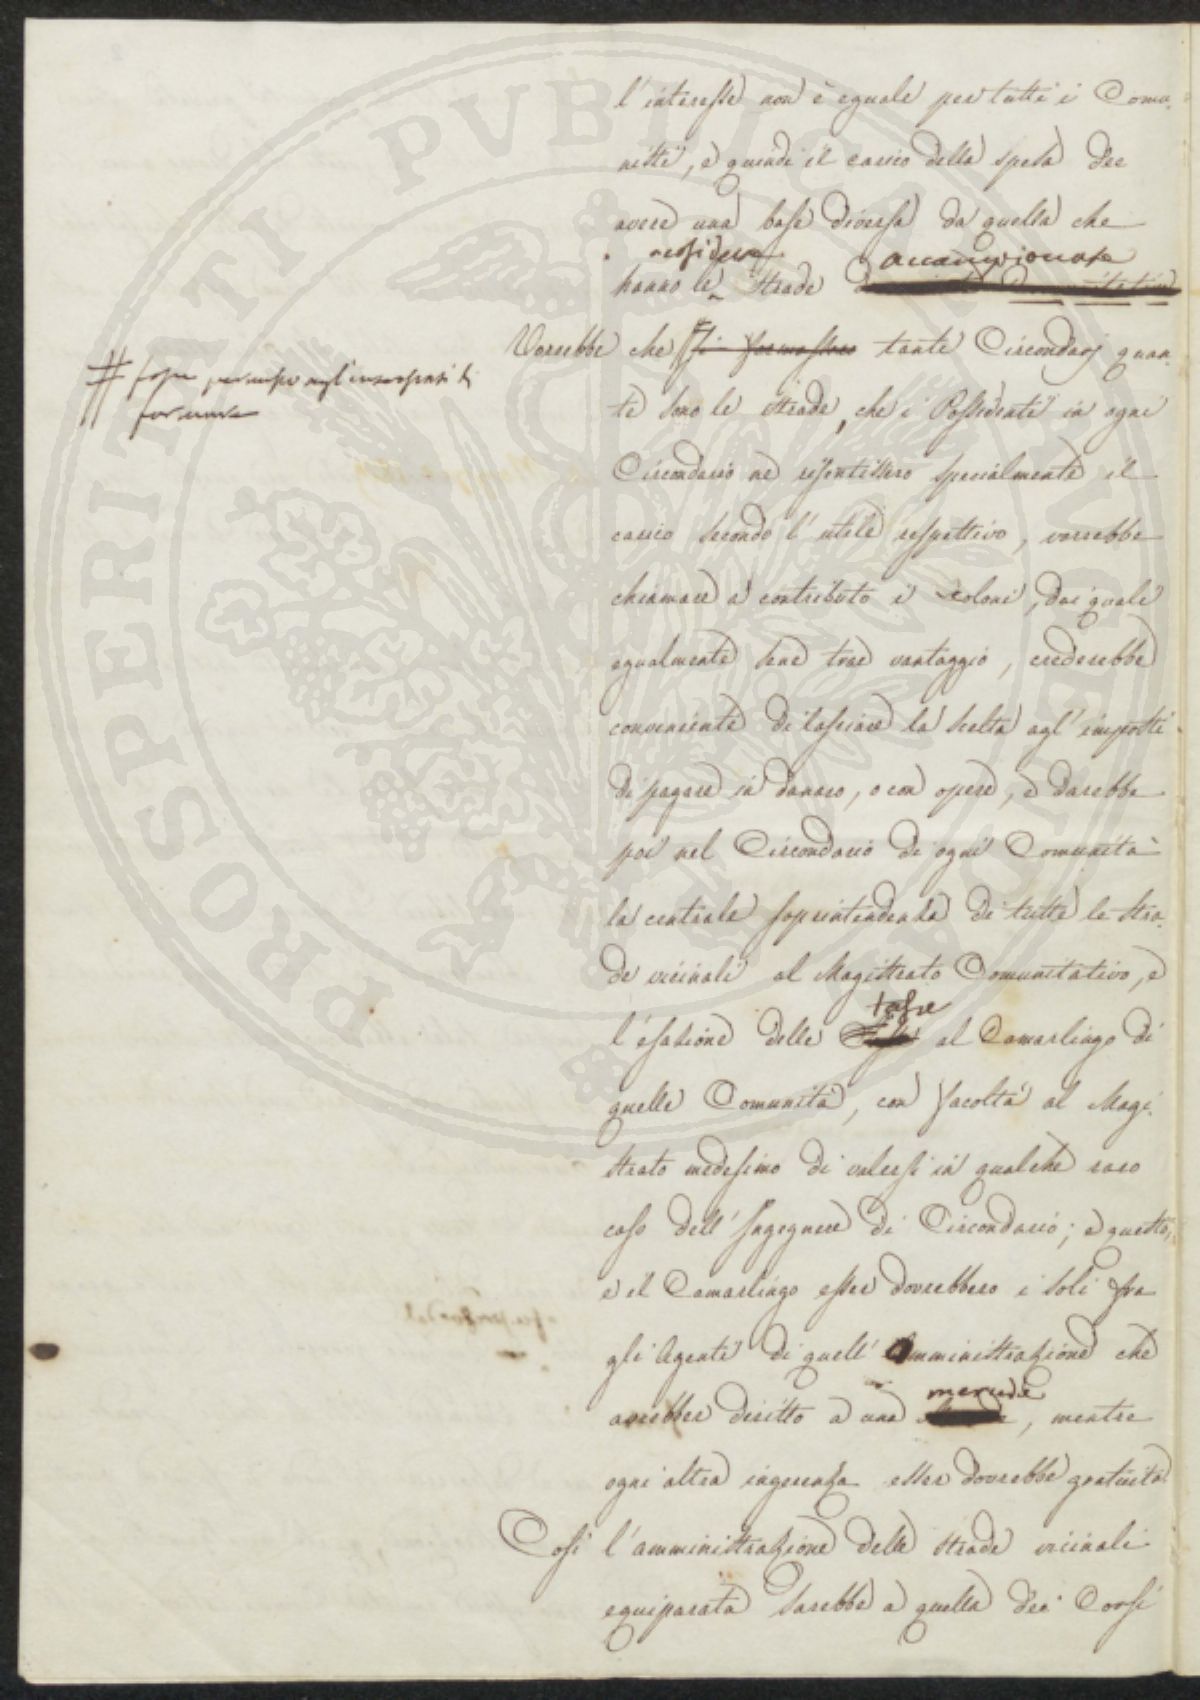 l'interesse non è eguale per tutti i Comu-
nisti, e quindi il carico della spesa dee
avere una base diversa da quella che
accampionate
hanno le strade
Vorrebbe che si formassero tante Circondarj quan-
# fosse permesso agl'interessati di
formare
ti sono le strade, che i Possidenti in ogni
Circondario ne risentissero specialmente il
carico secondo l'utile respettivo, vorrebbe
chiamare a contributo i Coloni, dai quali
egualmente sene trae vantaggio, crederebbe
conveniente di lasciare la scelta agl'imposti
di pagare in danaro, o con opere, e darebbe
poi nel Circondario di ogni Comunità
la centrale soprintendenza di tutte le stra-
de vicinali al Magistrato Comunitativo, e
tasse
l'esazione delle al Camarlingo di
quelle Comunità, con facoltà al Magi-
strato medesimo di valersi in qualche raro
caso dell'Ingegnere di Circondario; e questo,
e il Camarlingo esser dovrebbero i soli fra
gli Agenti di quell'Amministrazione che
mercede
avrebber diritto a una, mentre
ogni altra ingerenza esser dovrebbe gratuita
Così l'amministrazione delle strade vicinali
equiparata sarebbe a quella dei Corsi
PROSPERITATI PVBLICAE